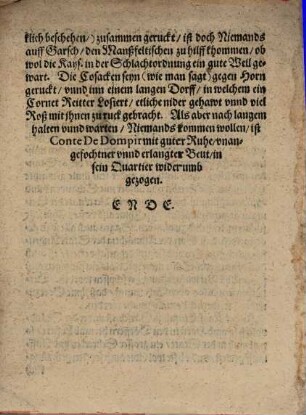 klich beschehen/) zusammen geruckt/ ist doch Niemands
auff Garsch/ den Manßfeltischen zu hilff khommen/ ob
wol die Kays. in der Schlachtordnung ein gute Weil ge-
wart. Die Cosacken seyn (wie man sagt) gegen Horn
geruckt/ vnnd inn einem langen Dorff/ in welchem ein
Cornet Reitter Losiert/ etliche nider gehawt vnnd viel
Roß mit jhnen zu ruck gebracht. Als aber nach langem
halten vnnd warten/ Niemands kommen wollen/ ist
Conte De Dompir mit guter Ruhe/ vnan-
gefochtner vnnd erlangter Beut/ in
sein Quartier widerumb
gezogen.
E N D E.